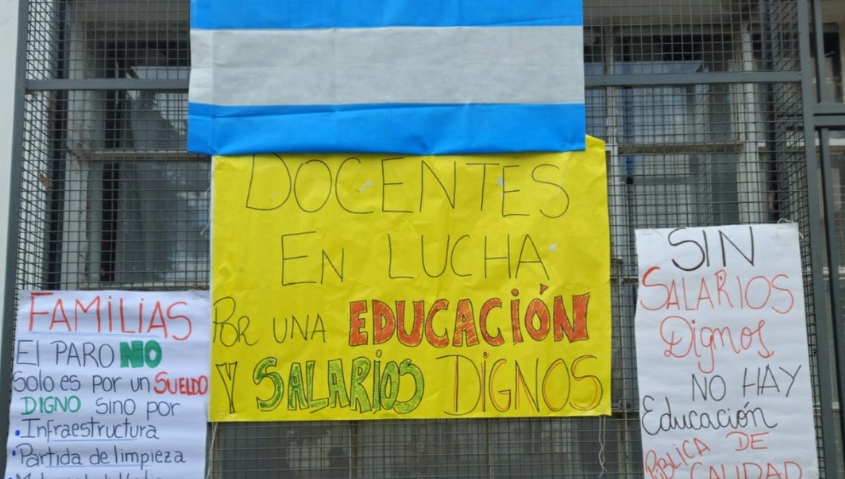 DOCENTES
EN LUCHA
POR UNA EDUCACIÓN
Y SALARIOS DIGNOS
FAMILIAS
El PARO NO
Solo es por un SUELDO
DIGNO sino por
•Infraestructura
•Partida de limpieza
SIN
SALARIOS
Dignos
NO HAY
Educación
PÚBLICA DE
CALIDAD